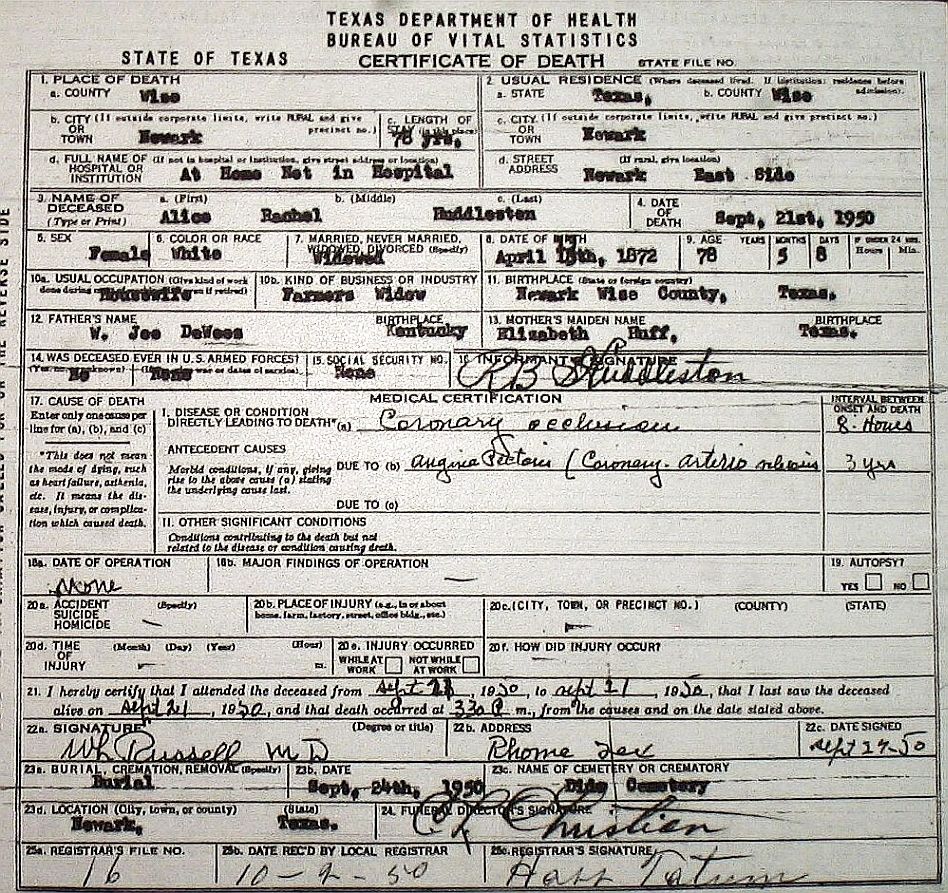 TEXAS DEPARTMENT OF HEALTH
BUREAU OF VITAL STATISTICS
STATE OF TEXAS CERTIFICATE OF DEATH STATE FILE NO.
1. PLACE OF DEATH
a. COUNTY Wise
2. USUAL RESIDENCE (Where deceased lived. If institution: residence before admission).
a. STATE Texas, b. COUNTY Wise
b. CITY (If outside corporate limits, write RURAL and give precinct no.)
OR
TOWN Newark
c. LENGTH OF
STAY (in this place)
78 yrs.
c. CITY (If outside corporate limits, write RURAL and give precinct no.)
OR
TOWN Newark
d. FULL NAME OF (If not in hospital or institution, give street address or location)
HOSPITAL OR
INSTITUTION At Home Not in Hospital
d. STREET (If rural, give location)
ADDRESS Newark East Side
3. NAME OF a. (First) b. (Middle) c. (Last)
DECEASED
(Type or Print) Alice Rachel Huddleston
4. DATE
OF
DEATH Sept, 21st, 1950
5. SEX
Female
6. COLOR OR RACE
White
7. MARRIED, NEVER MARRIED,
WIDOWED, DIVORCED (Specify)
Widowed
8. DATE OF BIRTH
April 13th, 1872
9. AGE YEARS MONTHS DAYS IF UNDER 24 HRS.
Hours Min.
78 5 8
10a. USUAL OCCUPATION (Give kind of work
done during most of working life, even if retired)
Housewife
10b. KIND OF BUSINESS OR INDUSTRY
Farmers Widow
11. BIRTHPLACE (State or foreign country)
Newark Wise County, Texas.
12. FATHER'S NAME BIRTHPLACE
W. Joe DeWees Kentucky
13. MOTHER'S MAIDEN NAME BIRTHPLACE
Elizabeth Huff, Texas.
14. WAS DECEASED EVER IN U.S. ARMED FORCES?
(Yes, no, or unknown) (If yes, give war or dates of service).
No None
15. SOCIAL SECURITY NO.
None
16. INFORMANT'S SIGNATURE
R B Huddleston
17. CAUSE OF DEATH
Enter only one cause per
line for (a), (b), and (c)
*This does not mean
the mode of dying, such
as heart failure, asthenia,
etc. It means the dis-
ease, injury, or complica-
tion which caused death.
MEDICAL CERTIFICATION
INTERVAL BETWEEN
ONSET AND DEATH
I. DISEASE OR CONDITION
DIRECTLY LEADING TO DEATH* (a) Coronary occlusion 8 Hours
ANTECEDENT CAUSES
Morbid conditions, if any, giving
rise to the above cause (a) stating
the underlying cause last.
DUE TO (b) Angina Pectoris (Coronary arterio sclerosis 3 yrs
DUE TO (c)
II. OTHER SIGNIFICANT CONDITIONS
Conditions contributing to the death but not
related to the disease or condition causing death.
18a. DATE OF OPERATION
None
18b. MAJOR FINDINGS OF OPERATION
—
19. AUTOPSY?
YES NO
20a. ACCIDENT (Specify)
SUICIDE
HOMICIDE —
20b. PLACE OF INJURY (e.g., in or about
home, farm, factory, street, office bldg., etc.)
20c. (CITY, TOWN, OR PRECINCT NO.) (COUNTY) (STATE)
—
20d. TIME (Month) (Day) (Year) (Hour)
OF
INJURY — m.
20e. INJURY OCCURRED
WHILE AT WORK NOT WHILE AT WORK
20f. HOW DID INJURY OCCUR?
21. I hereby certify that I attended the deceased from Sept 21, 1950, to Sept 21, 1950, that I last saw the deceased
alive on Sept 21, 1950, and that death occurred at 330 P m., from the causes and on the date stated above.
22a. SIGNATURE (Degree or title)
Wh Russell M D
22b. ADDRESS
Rhome Tex
22c. DATE SIGNED
Sept 27-50
23a. BURIAL, CREMATION, REMOVAL (Specify)
Burial
23b. DATE
Sept, 24th, 1950
23c. NAME OF CEMETERY OR CREMATORY
Dido Cemetery
23d. LOCATION (City, town, or county) (State)
Newark, Texas.
24. FUNERAL DIRECTOR'S SIGNATURE
Christian
25a. REGISTRAR'S FILE NO.
16
25b. DATE REC'D BY LOCAL REGISTRAR
10-2-50
25c. REGISTRAR'S SIGNATURE
Tatum